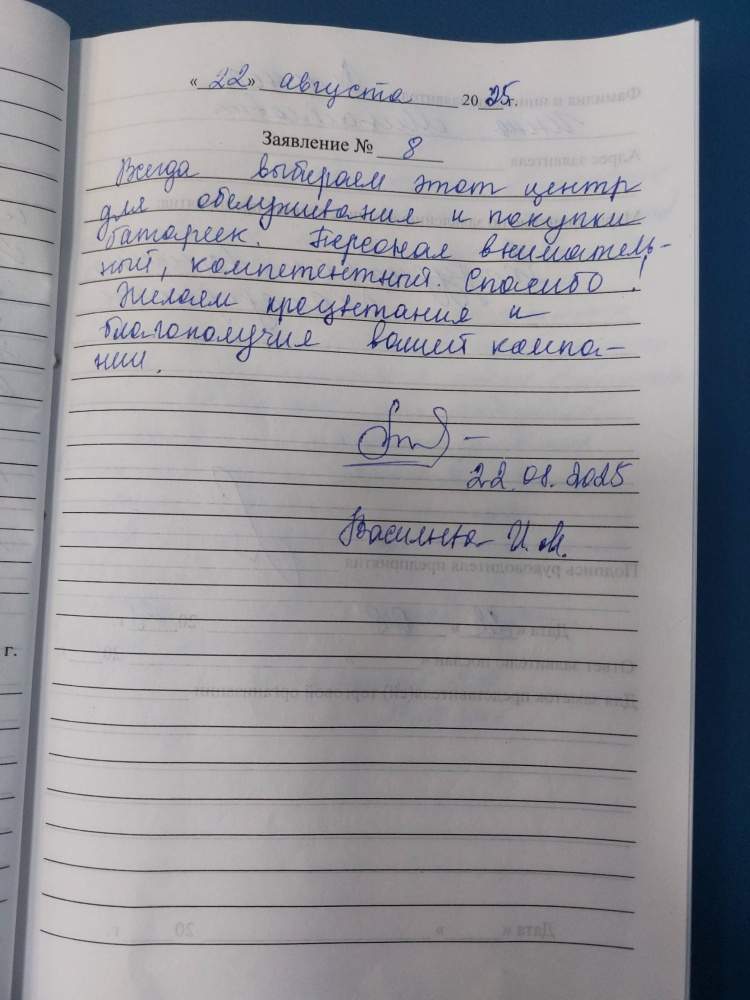 « 22 » августа 2025 г.
Заявление № 8
Всегда выбираем этот центр
для обслуживания и покупки
батареек. Персонал вниматель-
ный, компетентный. Спасибо!
Желаем процветания и
благополучия вашей компа-
нии.
22.08.2025
И. М.
Подпись руководителя предприятия
г.